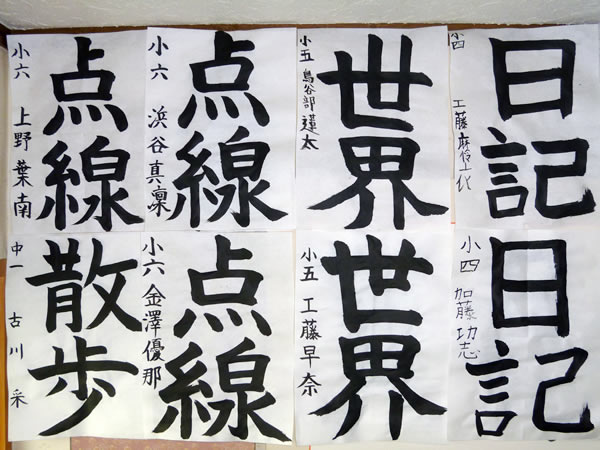 日記
小四 工藤麻伶亜
世界
小五 鳥谷部蓮太
点線
小六 浜谷真凜
点線
小六 上野葉南
日記
小四 加藤功志
世界
小五 工藤早奈
点線
小六 金澤優那
散歩
中一 古川采